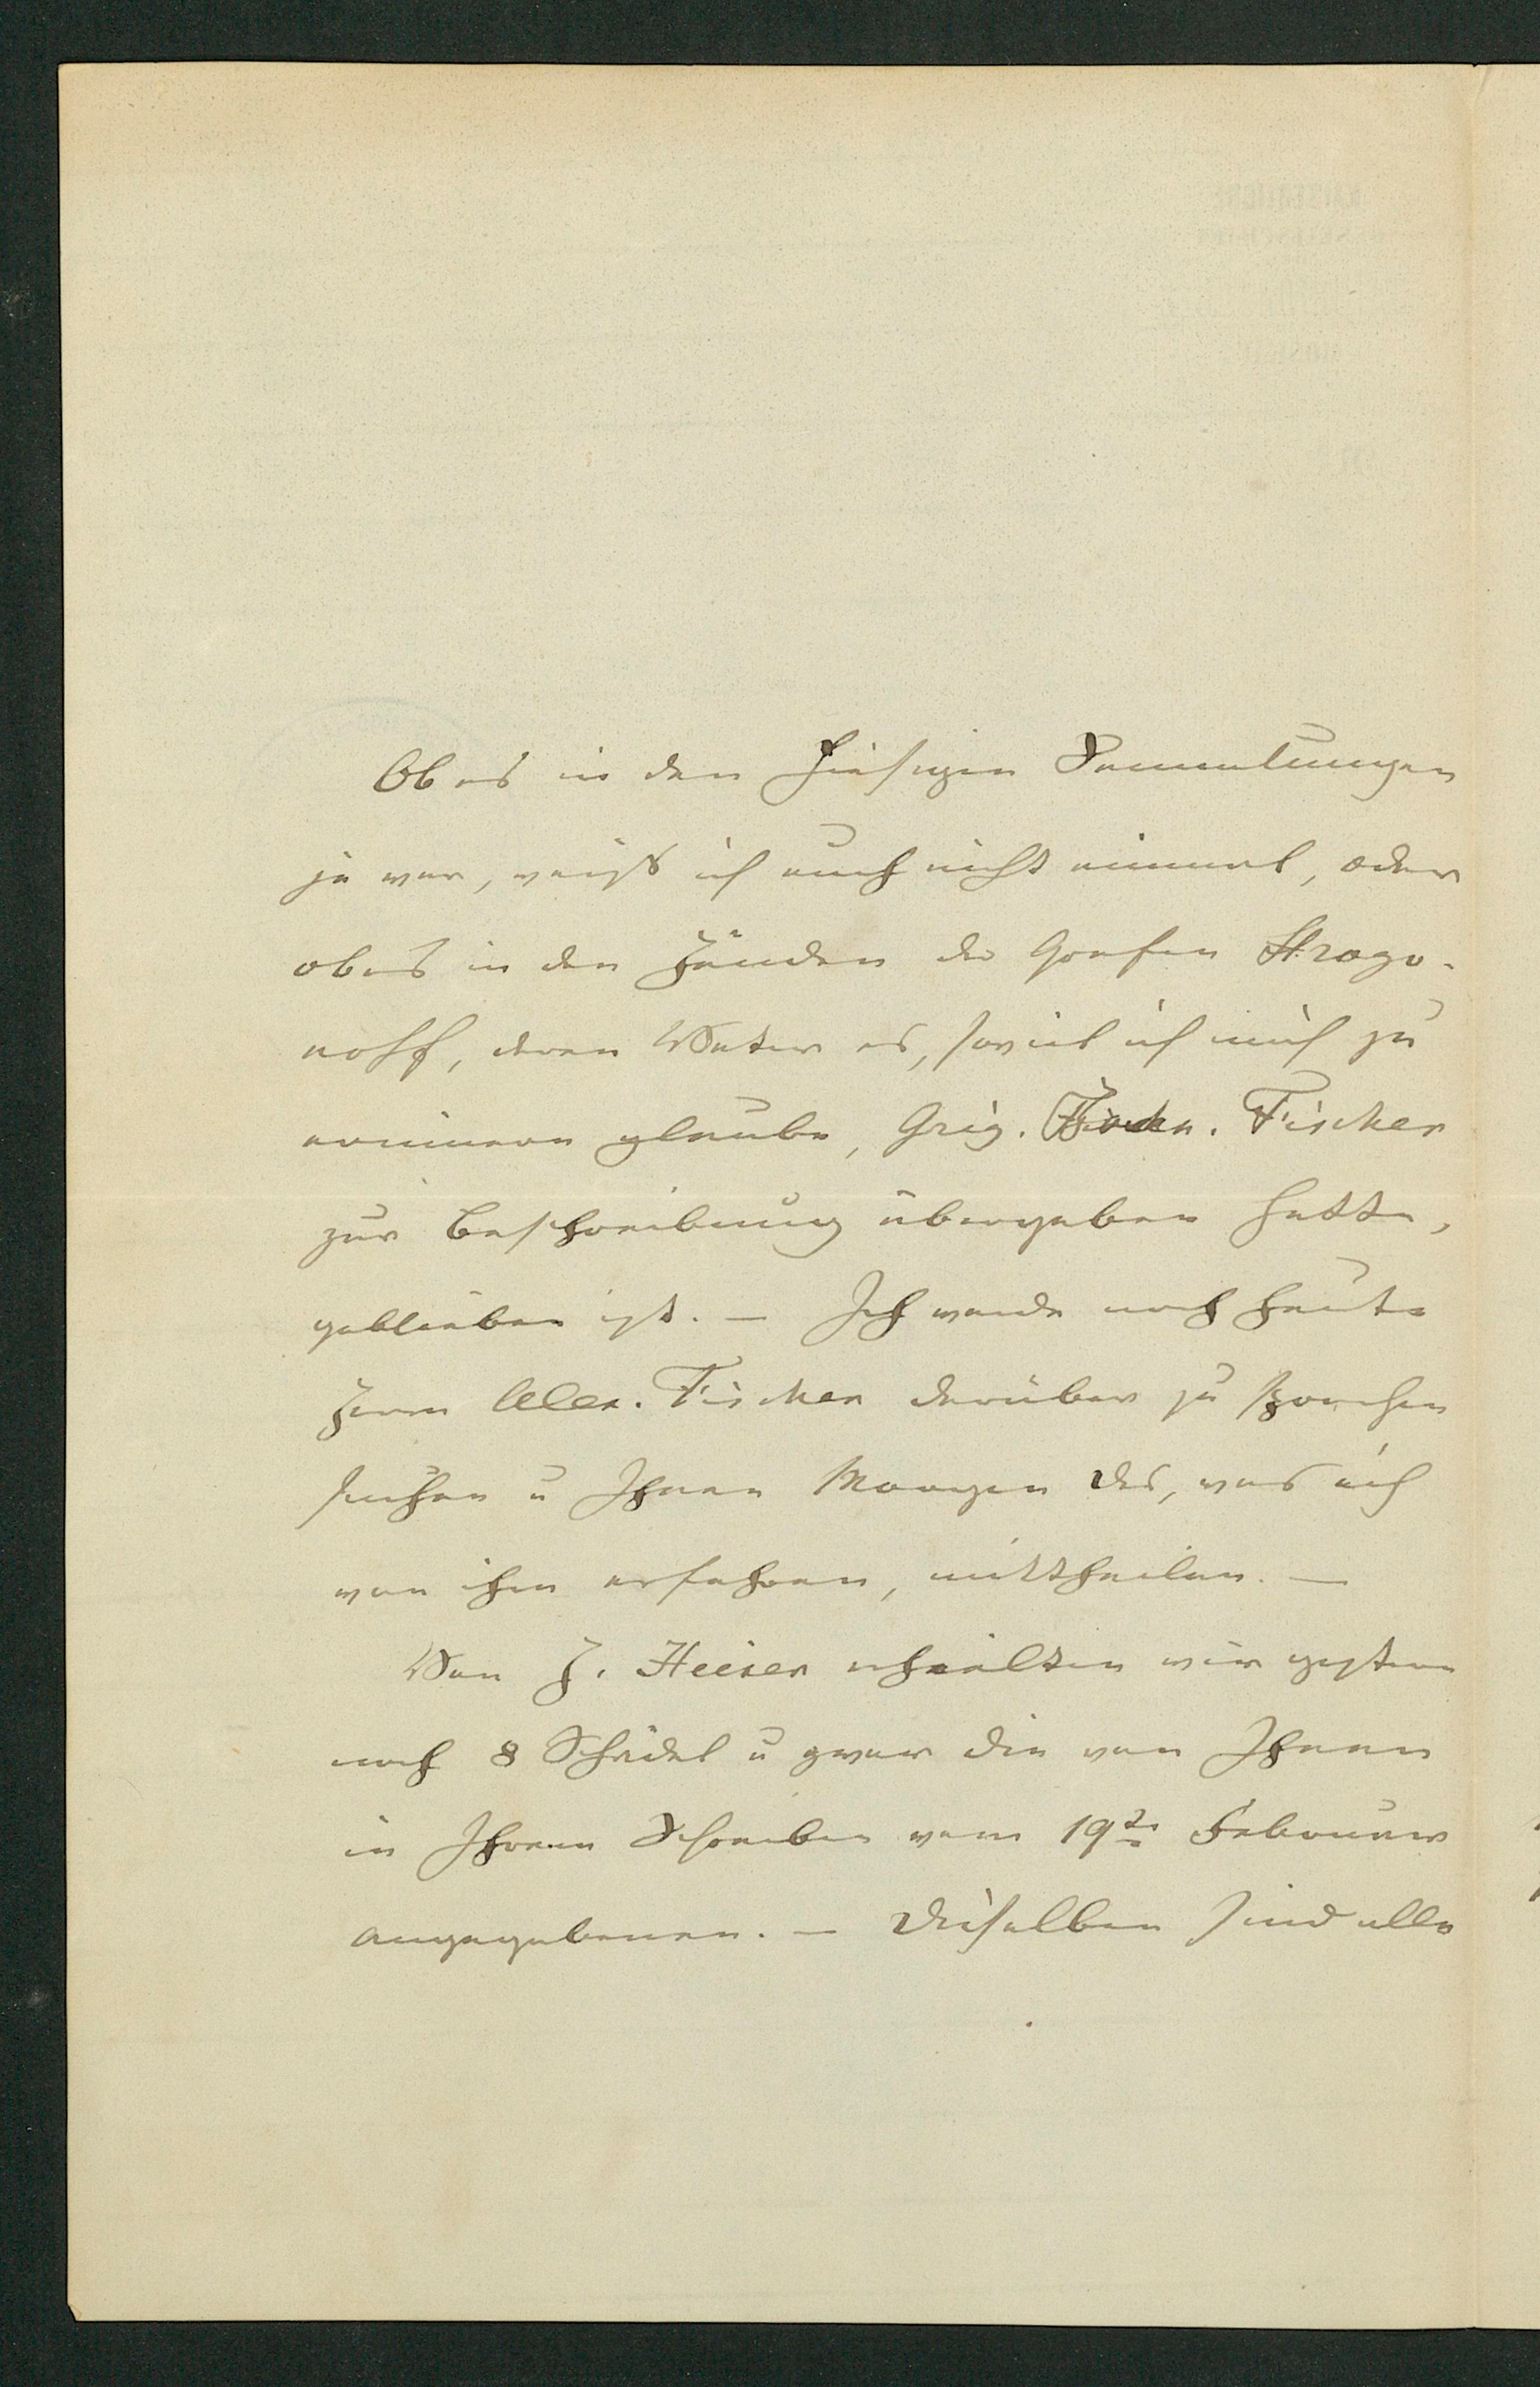 Ob es in den hiesigen Sammlungen
je war, weiß ich auch nicht einmal, oder
ob es in den Händen der Grafen Strogo-
noff, deren Vater es, soviel ich mich zu
erinnern glaube, Grig. Fischer
zur Beschreibung übergeben hatte,
geblieben ist. – Ich werde noch heute
Herrn Alex. Fischer darüber zu sprechen
suchen u Ihnen Morgen das, was ich
von ihm erfahren, mittheilen. –
Von H. Heiser erhielten wir gestern
noch 8 Schädel u zwar die von Ihnen
in Ihrem Schreiben vom 19ten Februar
angegebenen. – Dieselben sind alle